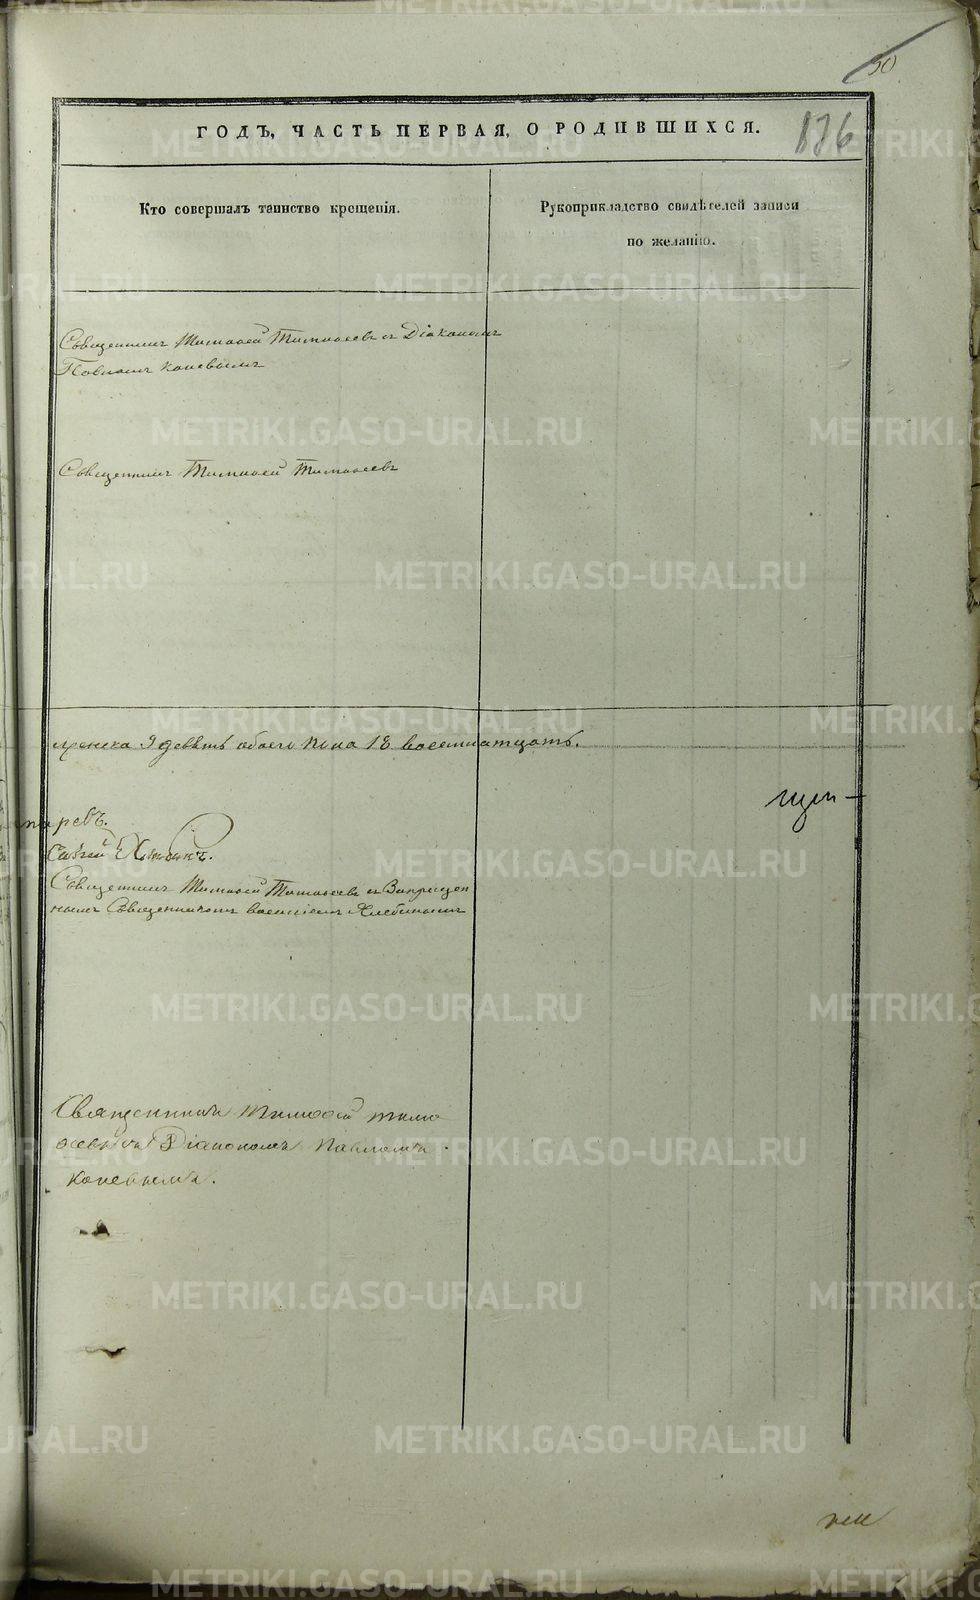 50
ГОДЪ, ЧАСТЬ ПЕРВАЯ, О РОДИВШИХСЯ.
176
Кто совершалъ таинство крещенія.
Рукоприкладство свидѣтелей записи
по желанію.
Священникъ Тимофей Тимофеевъ съ Діакономъ
Павломъ Коневымъ
Священникъ Тимофей Тимофеевъ
женска 9 девять обоего пола 18 восемнатцать.
Священникъ Тимофей Тимофеевъ съ Запрещен
нымъ Священникомъ Хлебинымъ
Священникъ Тимофей Тимо
ѳеевъ съ Діакономъ Павломъ
Коневымъ.
METRIKI.GASO-URAL.RU